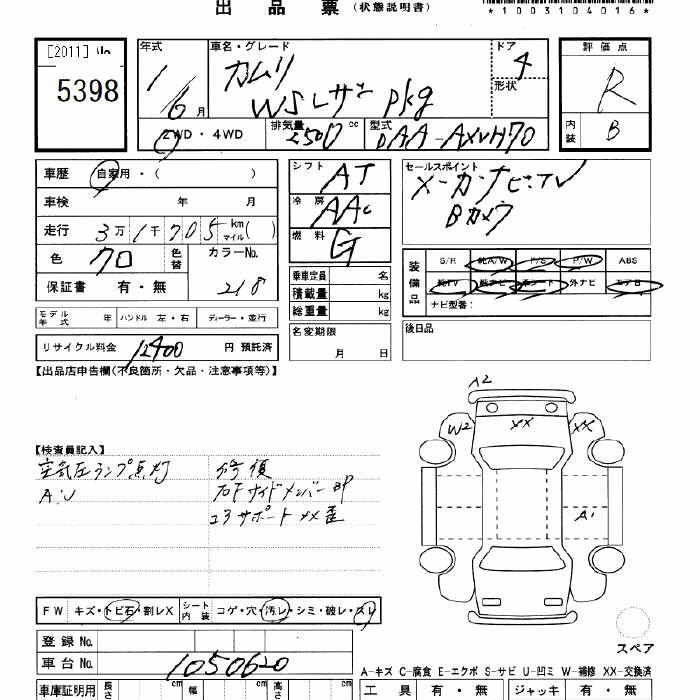 出品票（状態説明書）
*1003104016*
[2011]
5398
年式
1/6月
車名・グレード
カムリ
WSレザーpkg
ドア
4
形状
評価点
R
内装
B
2WD・4WD
排気量 2500cc
型式 DAA-AXVH70
車歴 自家用・( )
車検 年 月
走行 3万1千705km マイル( )
色 クロ
色替
カラーNo. 218
保証書 有・無
シフト AT
冷房 AAC
燃料 G
セールスポイント
メーカーナビ・TV
Bカメラ
装備品
S/R 純A/W P/S P/W ABS
純TV 純ナビ 革シート 外ナビ エアB
ナビ型番：
乗車定員 名
積載量 kg
総重量 kg
モデル年式 年 ハンドル 左・右 ディーラー・並行
名変期限 月 日
後日品
リサイクル料金 12400 円 預託済
【出品店申告欄(不良箇所・欠品・注意事項等)】
【検査員記入】
空気圧ランプ点灯
A・U
サイドメンバー
コアサポート
A2
W2
XX
XX
A1
FW キズ・トビ石・割レX
シート内装 コゲ・穴・汚レ・シミ・破レ・スレ
登録No.
車台No. 1050620
スペア
A-キズ C-腐食 E-エクボ S-サビ U-凹ミ W-補修 XX-交換済
車庫証明用 長さ cm 幅 cm 高さ cm
工具 有・無 ジャッキ 有・無